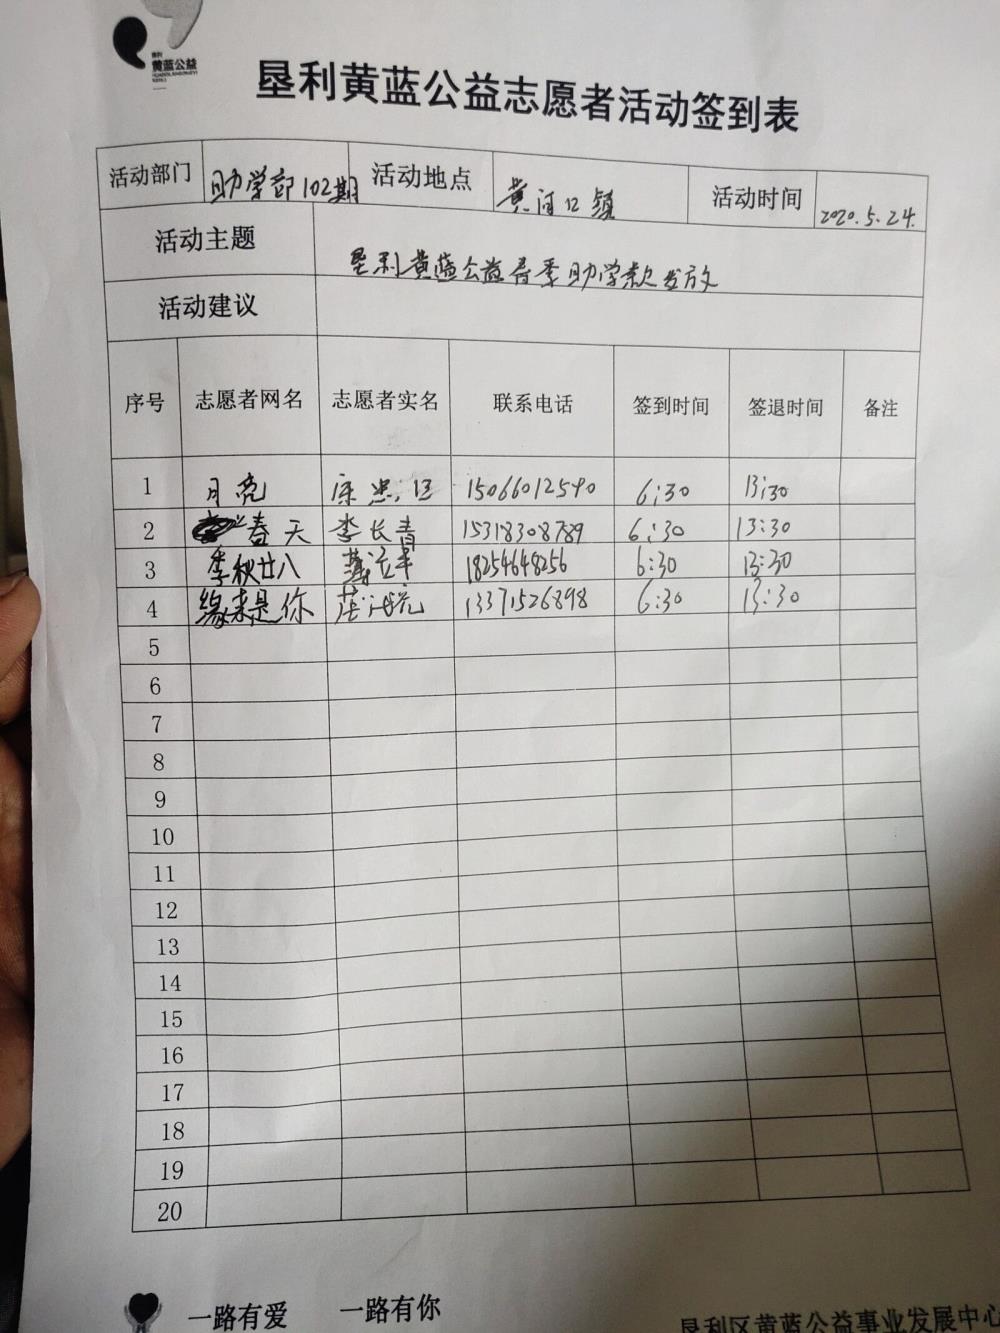 垦利
黄蓝公益
垦利黄蓝公益志愿者活动签到表
活动部门 助学部102期 活动地点 黄河口镇 活动时间 2020.5.24.
活动主题 垦利黄蓝公益春季助学款发放
活动建议
序号 志愿者网名 志愿者实名 联系电话 签到时间 签退时间 备注
1 月亮 15066012590 6:30 13:30
2 春天 李长青 15318308789 6:30 13:30
3 季秋廿八 18254648256 6:30 13:30
4 缘来是你 13371526898 6:30 13:30
5
6
7
8
9
10
11
12
13
14
15
16
17
18
19
20
一路有爱 一路有你
垦利区黄蓝公益事业发展中心